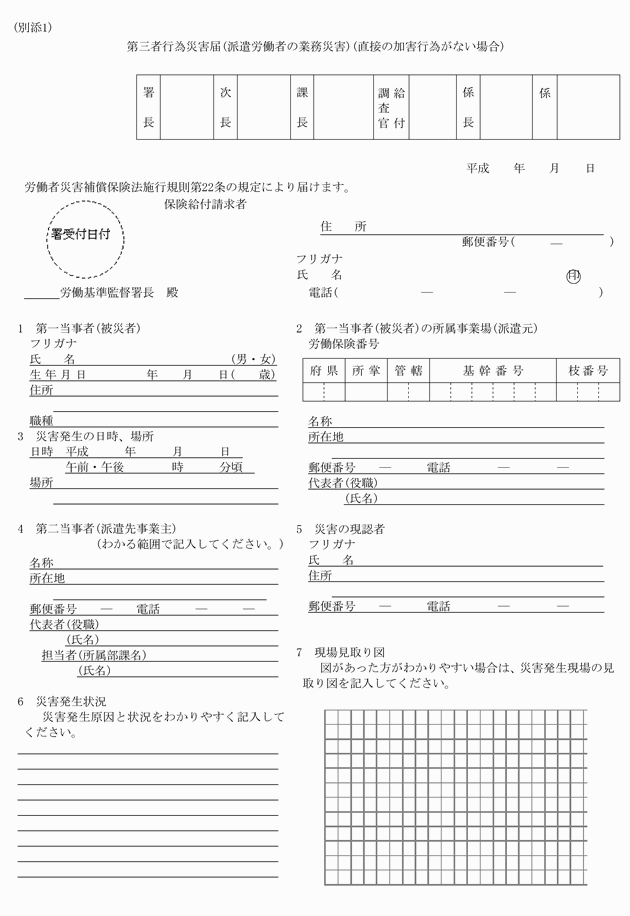 (別添1)
第三者行為災害届(派遣労働者の業務災害)(直接の加害行為がない場合)
署長 次長 課長 調査官 給付 係長 係
平成 年 月 日
労働者災害補償保険法施行規則第22条の規定により届けます。
保険給付請求者
署受付日付
住 所
郵便番号( ― )
フリガナ
氏 名 印
労働基準監督署長 殿
電話( ― ― )
1 第一当事者(被災者)
フリガナ
氏 名 (男・女)
生年月日 年 月 日( 歳)
住所
職種
2 第一当事者(被災者)の所属事業場(派遣元)
労働保険番号
府県 所掌 管轄 基幹番号 枝番号
名称
所在地
郵便番号 ― 電話 ― ―
代表者(役職)
(氏名)
3 災害発生の日時、場所
日時 平成 年 月 日
午前・午後 時 分頃
場所
4 第二当事者(派遣先事業主)
(わかる範囲で記入してください。)
名称
所在地
郵便番号 ― 電話 ― ―
代表者(役職)
(氏名)
担当者(所属部課名)
(氏名)
5 災害の現認者
フリガナ
氏 名
住所
郵便番号 ― 電話 ― ―
6 災害発生状況
災害発生原因と状況をわかりやすく記入して
ください。
7 現場見取り図
図があった方がわかりやすい場合は、災害発生現場の見
取り図を記入してください。